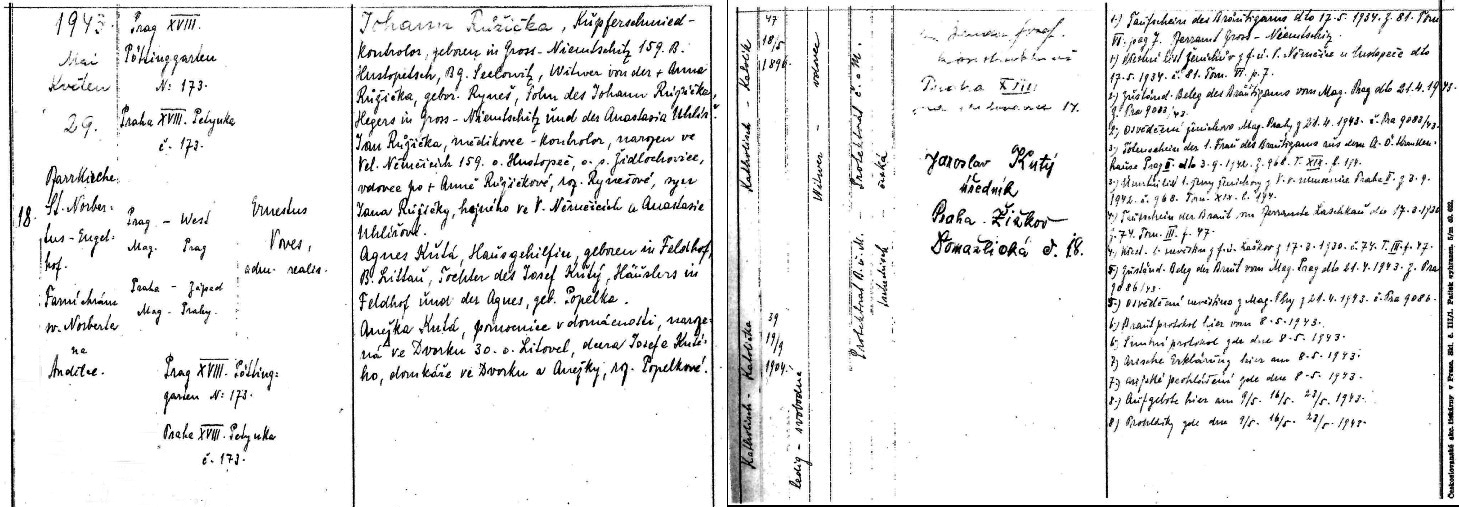 1943.
Mai
Květen
29.
Prag XVIII.
Pöttinggarten
N: 173.
Praha XVIII. Petynka
č. 173.
18.
Pfarrkirche
St. Norber-
tus-Engel-
hof.
Farní chrám
sv. Norberta
na
Andělce.
Prag - West
Mag. Prag
Praha - Západ
Mag. Prahy.
Ernestus
Voves,
adm. reales.
Prag XVIII. Pötting-
garten N: 173.
Praha XVIII. Petynka
č. 173.
Johann Růžička, Kupferschmied-
Kontrolor, geboren in Gross-Niemtschitz 159. B.
Hustopetsch, Bg. Seelowitz, Witwer von der + Anna
Růžička, gebor. Ryneš, Sohn des Johann Růžička,
Hegers in Gross-Niemtschitz und des Anastasia Uhlíř.
Jan Růžička, mědikovec-kontrolor, narozen ve
Vel. Němčicích 159. o. Hustopeč, o. s. Židlochovice,
vdovec po + Anně Růžičkové, roz. Rynešové, syn
Jana Růžičky, hajného ve V. Němčicích a Anastasie
Uhlířové.
Agnes Kutá, Hausgehilfin, geboren in Feldhof,
B. Littau, Tochter des Josef Kutý, Häuslers in
Feldhof und der Agnes, geb. Popelka.
Anežka Kutá, pomocnice v domácnosti, naroze-
ná ve Dvorku 30. o. Litovel, dcera Josefa Kuté-
ho, domkáře ve Dvorku a Anežky, roz. Popelkové.
Katholisch - Katolík
47
18/5
1896
Witwer - vdovec
Protektorat B. u. M. - Protektorát č. a M.
Katholisch - Katolička
39
19/9
1904
ledig - svobodná
Josef
Praha XIII
14.
Jaroslav Kutý
úředník
Praha-Žižkov
Domažlická č. 18.
1.) Taufschein des Bräutigams dto 17.5.1934. Z. 81. Tom
VI. pag 7. Pfarramt Gross-Niemtschitz.
1) Křestní list ženichův z f. ú. V. Němčice u Hustopeče dto
17.5.1934. č. 81. Tom. VI. p. 7.
2) Zuständ. Beleg des Bräutigams vom Mag. Prag dto 21.4.1943.
Z. Pra 9083/43.
2) Osvědčení ženichovo Mag. Prahy z 21.4.1943. č. Pra 9083/43.
3) Totenschein der 1. Frau des Bräutigams aus dem A. Ö. Kranken-
hause Prag II. dto 3.9.1942. Z. 968. T. XIX. f. 194.
3) Úmrtní list 1. ženy ženichovy z V. v. nemocnice Praha II. z 3.9.
1942. č. 968. Tom. XIX. f. 194.
4) Taufschein der Braut vom Pfarramte Laschkau dto 17.3.1930
Z. 74. Tom. III. f. 47
4) Křest. l. nevěstin z f. ú. Laškov z 17.3.1930. č. 74. T. III. f. 47.
5) Zuständ. Beleg der Braut vom Mag. Prag dto 21.4.1943. Z. Pra
9086/43.
5) Osvědčení nevěstino z Mag. Phy z 21.4.1943. č. Pra 9086.
6) Brautprotokol hier vom 8.5.1943.
6) Snubní protokol zde dne 8.5.1943.
7) Arische Erklärung hier am 8.5.1943.
7) Arijské prohlášení zde dne 8.5.1943.
8) Aufgebote hier am 9/5. 16/5. 23/5. 1943.
8) Prohlášky zde dne 9/5. 16/5. 23/5. 1943.
Českoslovanské akc. tiskárny v Praze. Skl. č. III/1. Papír vyhrazen. 5/m 40.632.